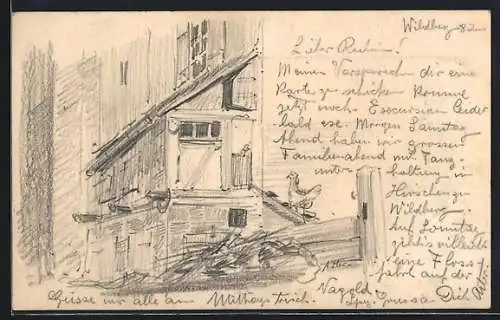 Wildberg
Lieber
Meinem Versprechen dir eine
Karte zu schicken komme
jetzt nach. Excursion leider
bald ese. Morgen Samstag
Abend haben wir grossen
Familienabend mit Tanz-
unter-
haltung im
Hirschen zu
Wildberg.
Auf Sonntag
gehts vielleicht
eine Floss-
fahrt auf der
Nagold.
Grüsse mir alle am Mittagstisch.
Dich